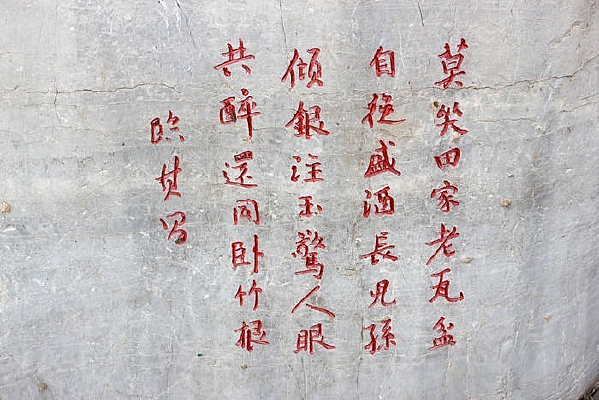 莫笑田家老瓦盆
自從盛酒長兒孫
傾銀注玉驚人眼
共醉還同臥竹根
臨其昌